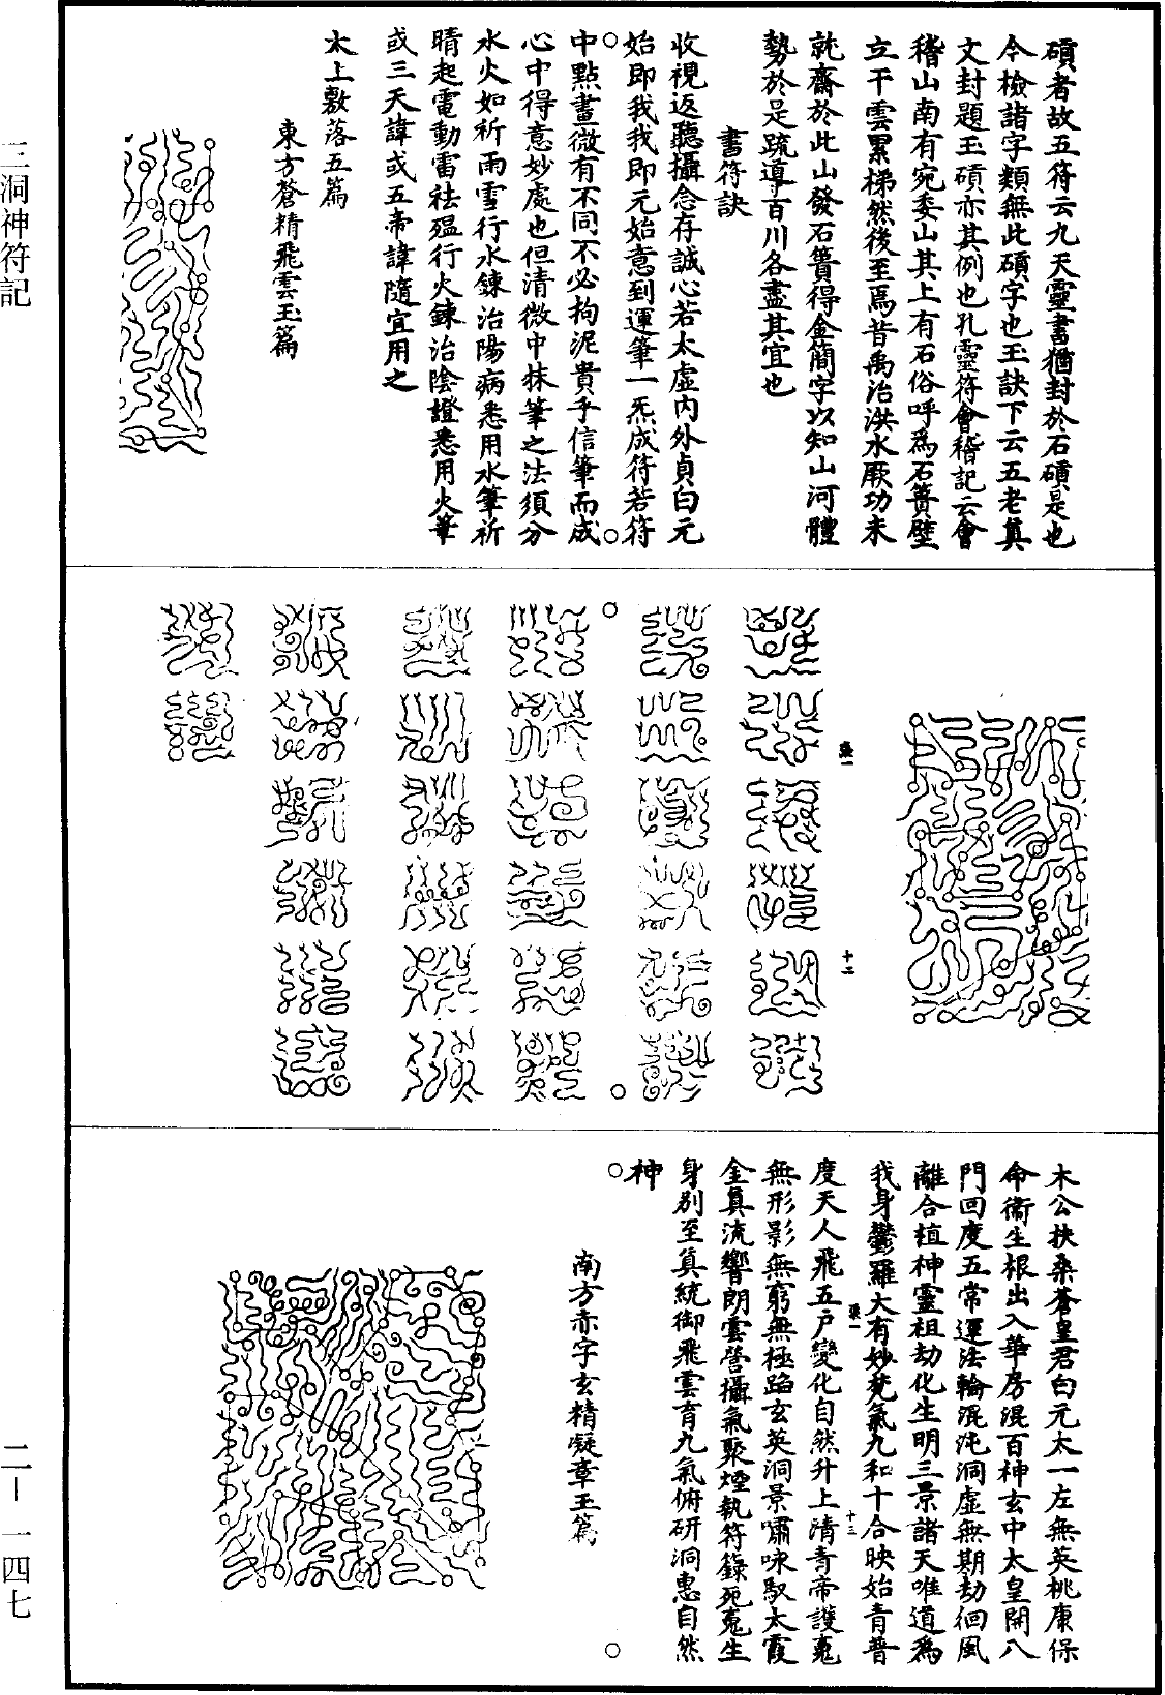 磧者故五符云九天靈書猶封於石磧是也
今檢諸字類無此磧字也玉訣下云五老真
文封題玉磧亦其例也孔靈符會稽記云會
稽山南有宛委山其上有石俗呼為石簣壁
立干雲累梯然後至焉昔禹治洪水厥功未
就齋於此山發石簣得金簡字以知山河體
勢於是疏導百川各盡其宜也
書符訣
收視返聽攝念存誠心若太虛內外貞白元
始即我我即元始意到運筆一炁成符若符
中點畫微有不同不必拘泥貴乎信筆而成
心中得意妙處也但清微中抹筆之法須分
水火如祈雨雪行水鍊治陽病悉用水筆祈
晴起電動雷祛瘟行火鍊治陰證悉用火筆
或三天諱或五帝諱隨宜用之
太上敷落五篇
東方蒼精飛雲玉篇
十二
木公扶桑蒼皇君白元太一左無英桃康保
命衛生根出入華房混百神玄中太皇開八
門回度五常運法輪混沌洞虛無期劫徊風
離合植神靈祖劫化生明三景諸天唯道為
我身鬱羅大有妙梵氣九和十合映始青普
十三
度天人飛五戶變化自然升上清青帝護䰟
無形影無窮無極蹈玄英洞景嘯咏馭太霞
金真流響朗雲營攝氣聚煙執符籙死䰟生
身別至真統御飛雲育九氣俯研洞惠自然
神
南方赤字玄精凝章玉篇
三洞神符記
二－一四七